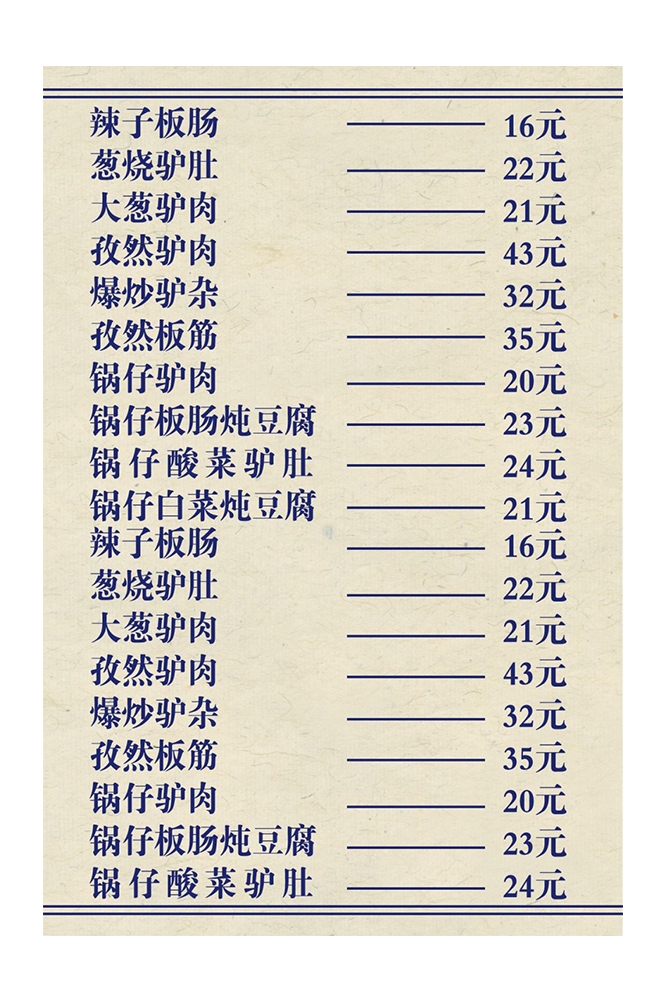 辣子板肠 16元
葱烧驴肚 22元
大葱驴肉 21元
孜然驴肉 43元
爆炒驴杂 32元
孜然板筋 35元
锅仔驴肉 20元
锅仔板肠炖豆腐 23元
锅仔酸菜驴肚 24元
锅仔白菜炖豆腐 21元
辣子板肠 16元
葱烧驴肚 22元
大葱驴肉 21元
孜然驴肉 43元
爆炒驴杂 32元
孜然板筋 35元
锅仔驴肉 20元
锅仔板肠炖豆腐 23元
锅仔酸菜驴肚 24元